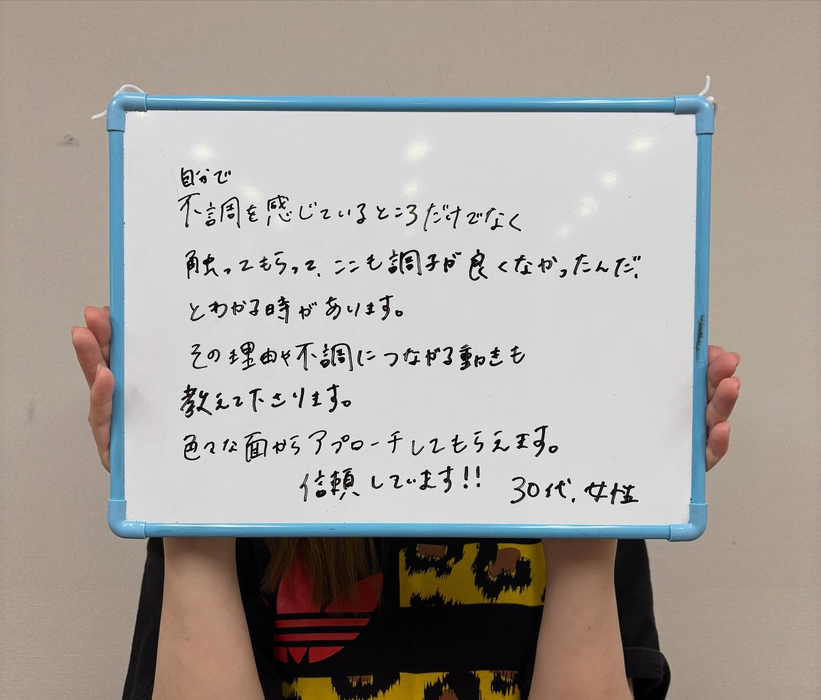 自分で
不調を感じているところだけでなく
触ってもらって、ここも調子が良くなかったんだ、
とわかる時があります。
その理由や不調につながる動きも
教えて下さります。
色々な面からアプローチしてもらえます。
信頼しています!! 30代、女性